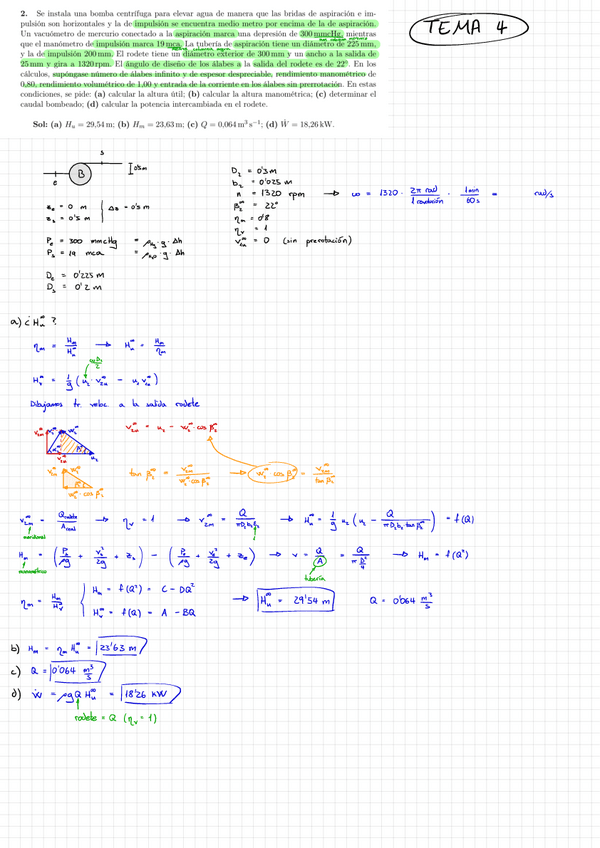 2. Se instala una bomba centrífuga para elevar agua de manera que las bridas de aspiración e im-
pulsión son horizontales y la de impulsión se encuentra medio metro por encima de la de aspiración.
Un vacuómetro de mercurio conectado a la aspiración marca una depresión de 300 mmcHg, mientras
que el manómetro de impulsión marca 19 mca. La tubería de aspiración tiene un diámetro de 225 mm,
y la de impulsión 200 mm. El rodete tiene un diámetro exterior de 300 mm y un ancho a la salida de
25 mm y gira a 1320 rpm. El ángulo de diseño de los álabes a la salida del rodete es de 22º. En los
cálculos, supóngase número de álabes infinito y de espesor despreciable, rendimiento manométrico de
0,80, rendimiento volumétrico de 1,00 y entrada de la corriente en los álabes sin prerrotación. En estas
condiciones, se pide: (a) calcular la altura útil; (b) calcular la altura manométrica; (c) determinar el
caudal bombeado; (d) calcular la potencia intercambiada en el rodete.
Sol: (a) Hu = 29,54 m; (b) Hm = 23,63 m; (c) Q = 0,064 m³ s⁻¹; (d) Ẇ = 18,26 kW.
TEMA 4
s
B
0'5m
e
ze = 0 m
zs = 0'5 m
Δz = 0'5 m
Pe = 300 mmcHg = ρHg · g · Δh
Ps = 19 mca = ρH2O · g · Δh
De = 0'225 m
Ds = 0'2 m
D2 = 0'3 m
b2 = 0'025 m
n = 1320 rpm → ω = 1320 · 2π rad / 1 revolución · 1 min / 60 s = rad/s
β2∞ = 22º
ηm = 0'8
ηv = 1
v1u∞ = 0 (sin prerotación)
a) ¿Hu∞ ?
ηm = Hm / Hu∞ → Hu∞ = Hm / ηm
ω D2 / 2
Hu∞ = 1/g (u2 · v2u∞ - u1 v1u∞)
Dibujamos tr. veloc. a la salida rodete
v2m∞ v2∞ w2∞ α2∞ β2∞ v2u∞ u2
v2u∞ = u2 - w2∞ · cos β2∞
v2m∞ w2∞ β2∞ w2∞ · cos β2∞
tan β2∞ = v2m∞ / w2∞ cos β2∞ → w2∞ cos β2∞ = v2m∞ / tan β2∞
v2m∞ = Qrodete / Areal → ηv = 1 → v2m∞ = Q / πD2b2 → Hu∞ = 1/g u2 (u2 - Q / πD2 b2 tan β2∞) = f(Q)
meridional
Hm = (Ps/ρg + vs²/2g + zs) - (Pe/ρg + ve²/2g + ze) → v = Q/A = Q / π D²/4 → Hm = f(Q²)
manométrica
tubería
ηm = Hm / Hu∞ { Hm = f(Q²) = C - DQ²
Hu∞ = f(Q) = A - BQ
→ Hu∞ = 29'54 m Q = 0'064 m³/s
b) Hm = ηm Hu∞ = 23'63 m
c) Q = 0'064 m³/s
d) Ẇ = ρgQ Hu∞ = 18'26 kW
rodete = Q (ηv = 1)